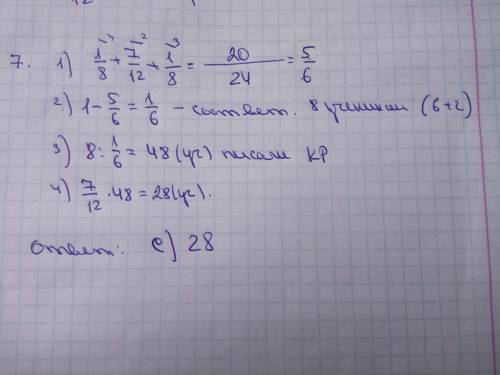 7. 1) 1/8 + 7/12 + 1/8 = 20/24 = 5/6
2) 1 - 5/6 = 1/6 - соответ. 8 ученикам (6+2)
3) 8 : 1/6 = 48 (уч) писали КР
4) 7/12 · 48 = 28 (уч).
Ответ: e) 28